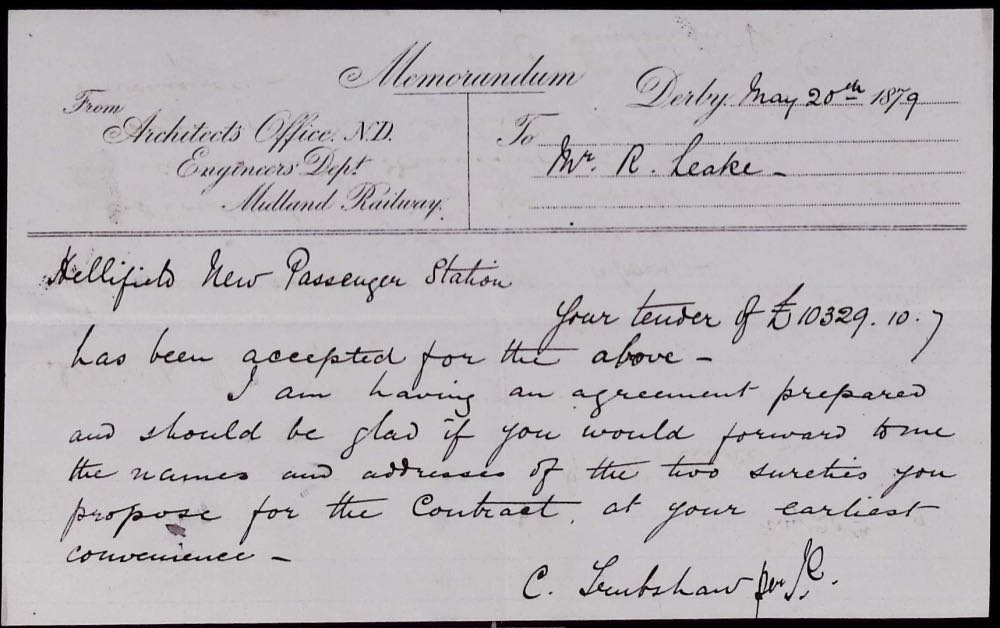 Memorandum
Derby. May 20th 1879
From
Architects Office. N.D.
Engineers Dept
Midland Railway.
To
Mr. R. Leake -
Hellifield New Passenger Station
Your tender of £10329.10.7
has been accepted for the above -
I am having an agreement prepared
and should be glad if you would forward to me
the names and addresses of the two sureties you
propose for the Contract, at your earliest
convenience -
C. Trubshaw per